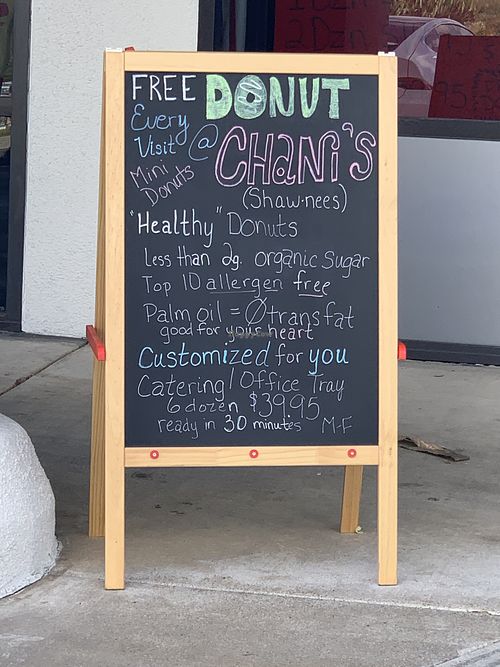 FREE DONUT
Every Visit @ CHANi's
Mini Donuts
(Shaw·nees)
"Healthy" Donuts
Less than 2g. organic Sugar
Top 10 allergen free
Palm oil = Ø trans fat
good for your heart
Customized for you
Catering / Office Tray
6 dozen $39.95
ready in 30 minutes M-F
2 Dzn